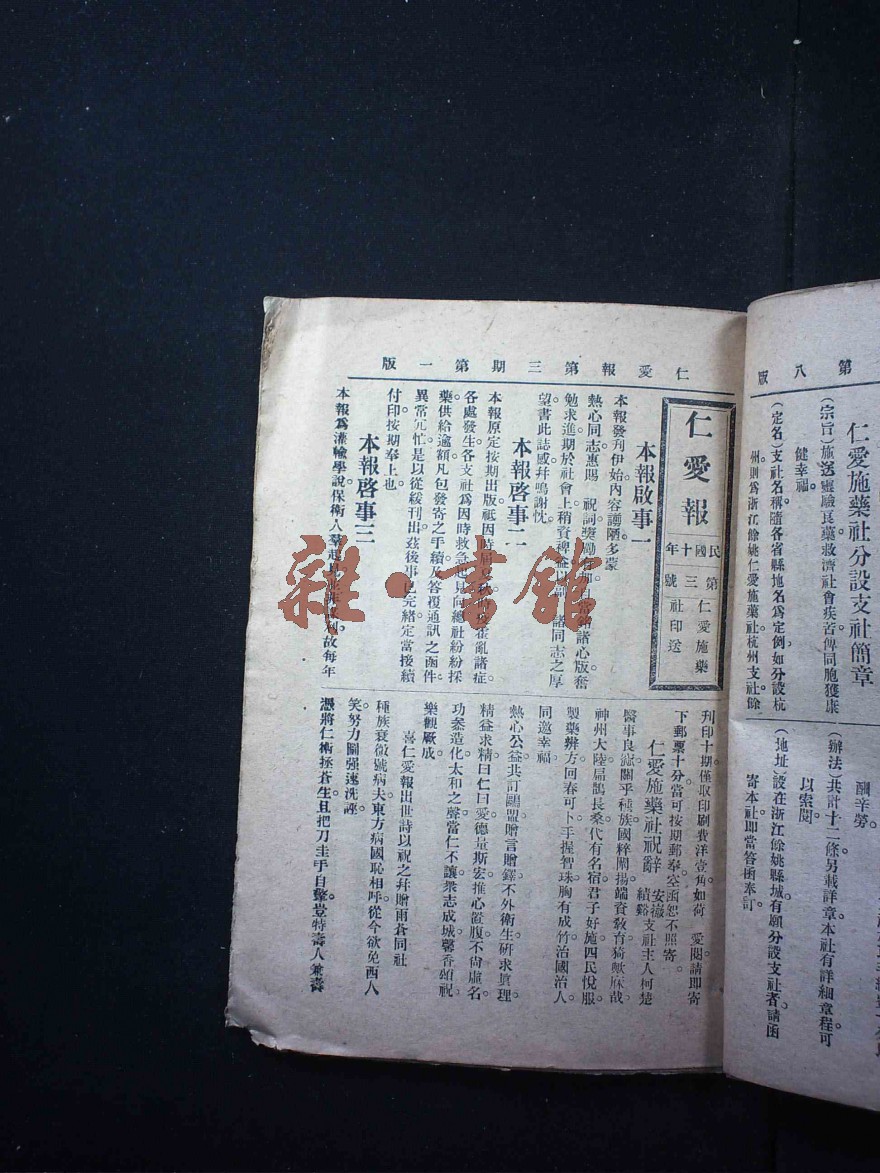 第八版
仁愛施藥社分設支社簡章
(宗旨)施送靈驗良藥救濟社會疾苦俾同胞獲康
健幸福。
(定名)支社名稱隨各省縣地名為定例如分設杭
州則爲浙江餘姚仁愛施藥社杭州支社餘
酬辛勞。
(辦法)共計十二條另載詳章本社有詳細章程可
以索閱。
(地址)設在浙江餘姚縣城有願分設支社者請函
寄本社即當答函奉訂。
仁愛報第三期第一版
仁愛報
民國十年
第三號
仁愛施藥
社印送
本報啟事一
本報發刊伊始內容譾陋多蒙
熱心同志惠賜 祝詞獎勵
諸心版奮
勉求進期於社會上稍資裨益
諸同志之厚
望書此誌感幷鳴謝忱。
本報啓事二
本報原定按期出版祗因時屆夏秋
霍亂諸症
各處發生各支社爲因時救急起見向總社紛紛採
藥供給逾額凡包發寄之手續及答覆通訊之函件
異常冗忙是以從緩刊出茲後事已完緒定當接續
付印按期奉上也。
本報啓事三
本報爲灌輸學說保衛人羣起見
故每年
刊印十期僅取印刷費洋壹角如荷 愛閱請即寄
下郵票十分當可按期郵奉空函恕不照寄。
仁愛施藥社祝辭 安徽績谿支社主人柯楚
醫事良窳關乎種族國粹闡揚端資敎育猗歟庥哉
神州大陸扁鵲長桑代有名宿君子好施四民悅服
製藥辨方回春可卜手握智珠胸有成竹治國治人
同邀幸福。
熱心公益共訂鷗盟贈言贈鐸不外衛生研求眞理
精益求精曰仁曰愛德量斯宏推心置腹不尙虛名
功參造化太和之聲當仁不讓衆志成城馨香頌祝
樂觀厥成
喜仁愛報出世詩以祝之幷贈雨蒼同社
種族衰微號病夫東方病國恥相呼從今欲免西人
笑努力圖强速洗誣。
憑將仁術拯蒼生且把刀圭手自擎豈特壽人兼壽